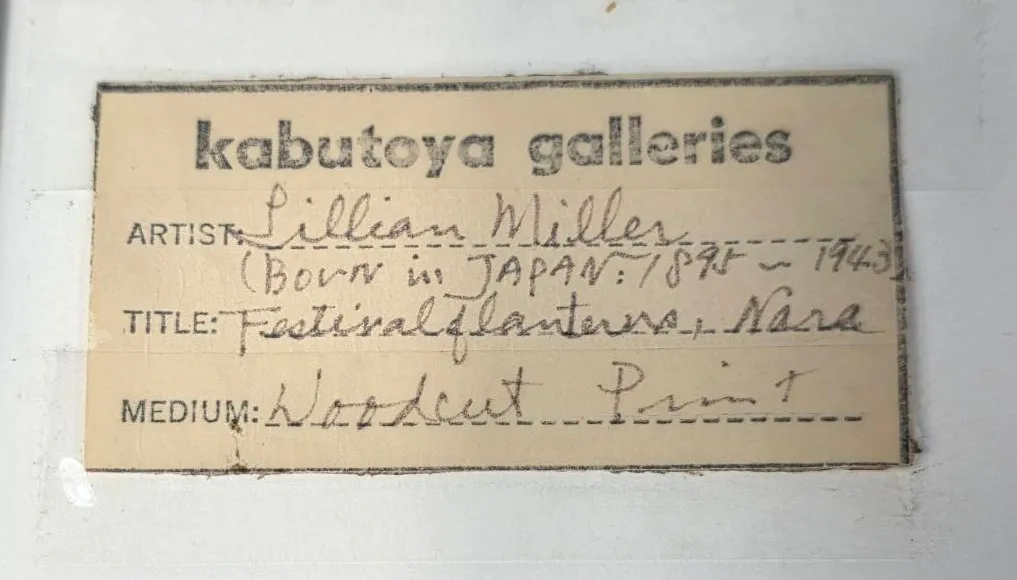 kabutoya galleries
ARTIST: Lillian Miller
(Born in JAPAN: 1895 ~ 1943)
TITLE: Festival of lanterns, Nara
MEDIUM: Woodcut Print